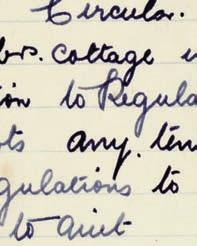 Circular.
ors. Cottage
ion to Regula
ots any. ten
gulations to
to aint